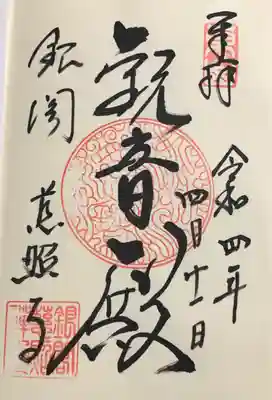 奉拝
令和四年
四月十一日
観音殿
銀閣
慈照寺